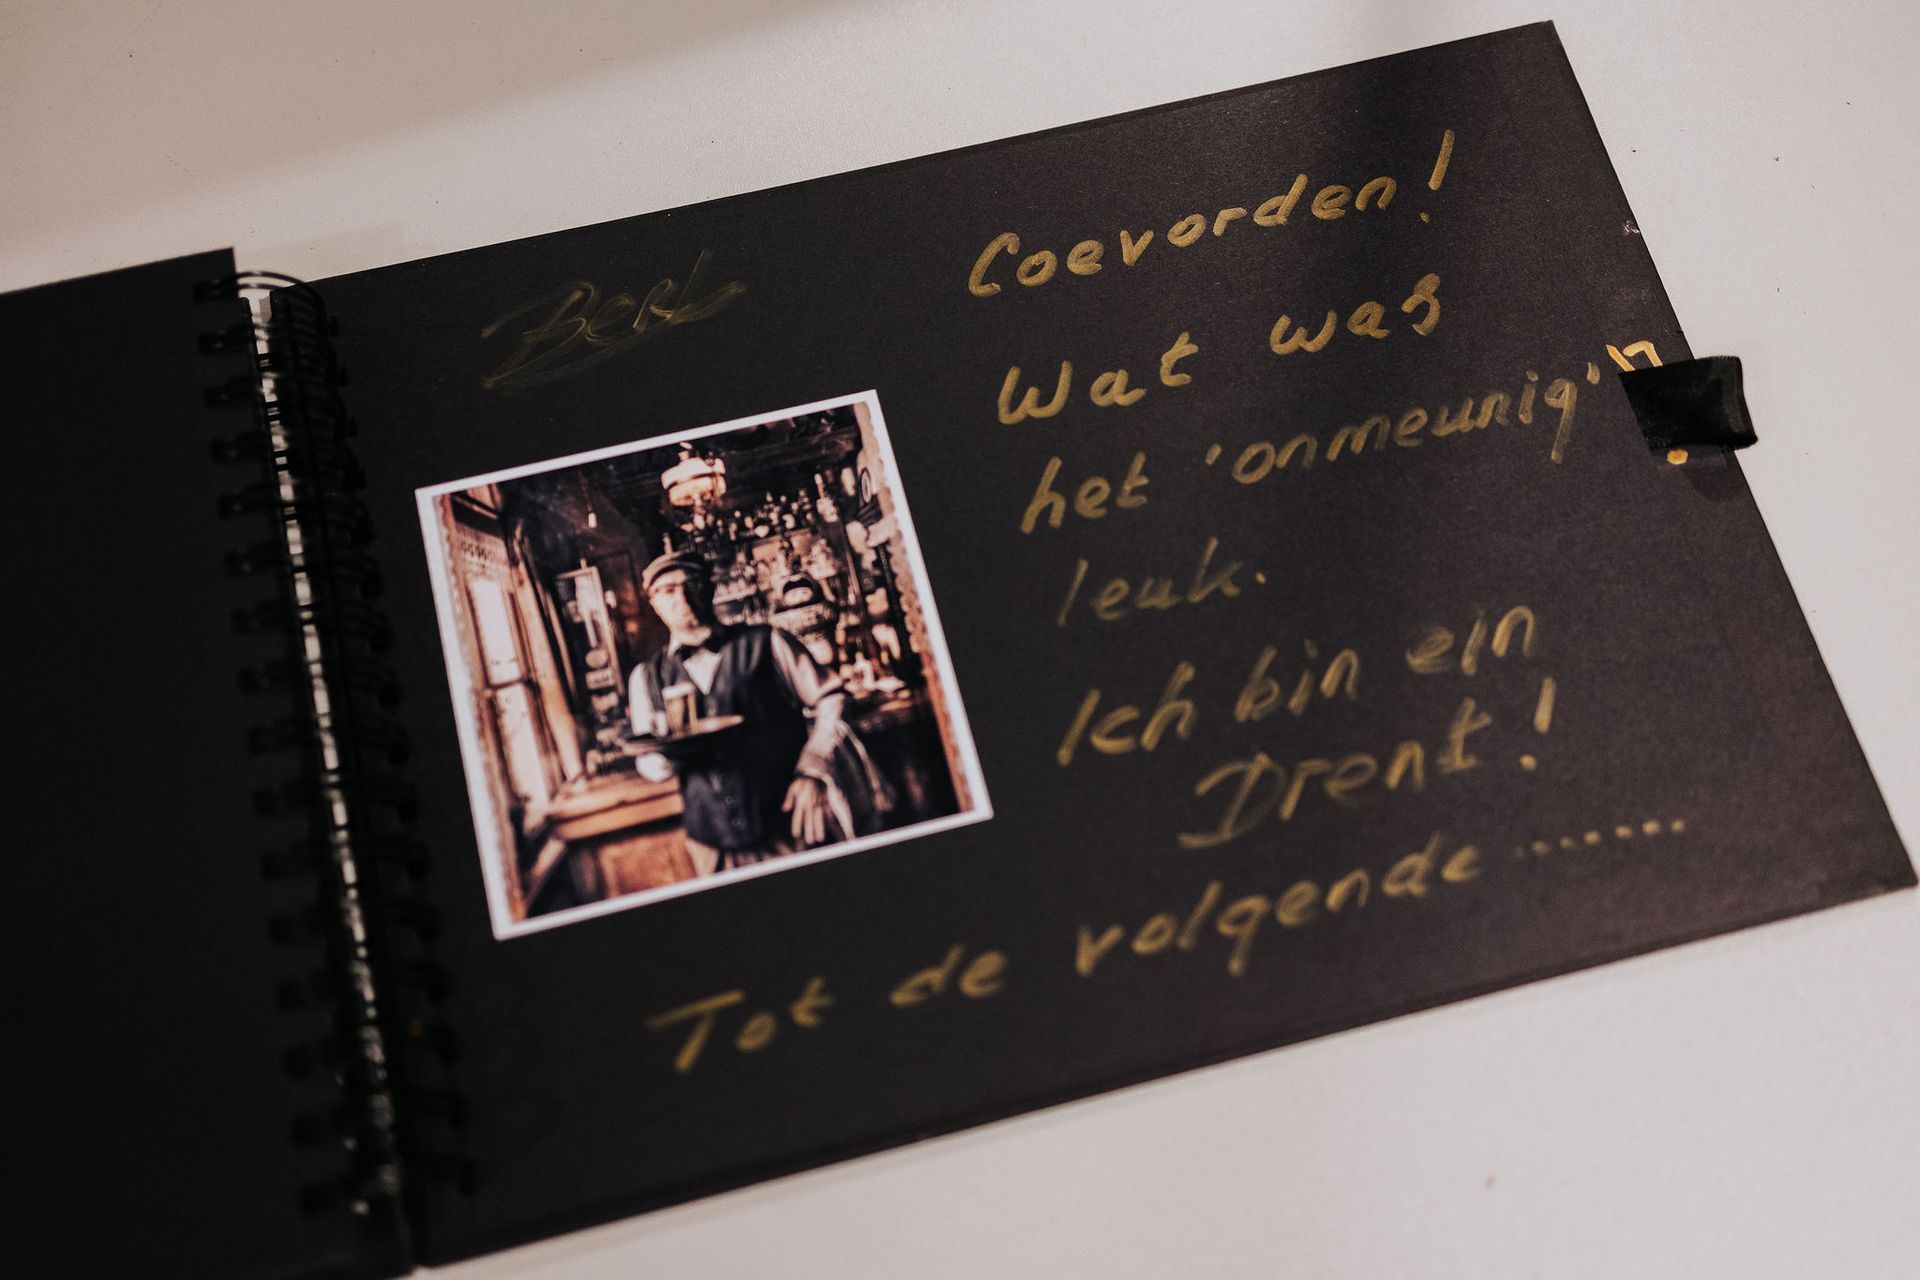 Bert
Coevorden!
Wat was
het 'onmeunig'
leuk.
Ich bin ein
Drent!
Tot de volgende .......